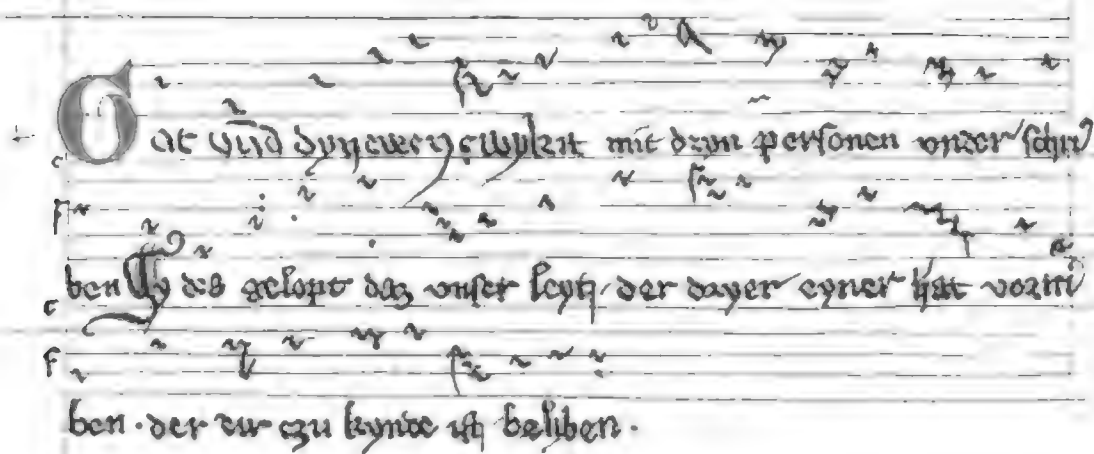 Got vnd dyn ewen mit dryn personen vnder schri
ben Sy des gelopt daz vnser leyt der dryer eyner hat vortri
ben · der dir czu kynde ist belyben ·